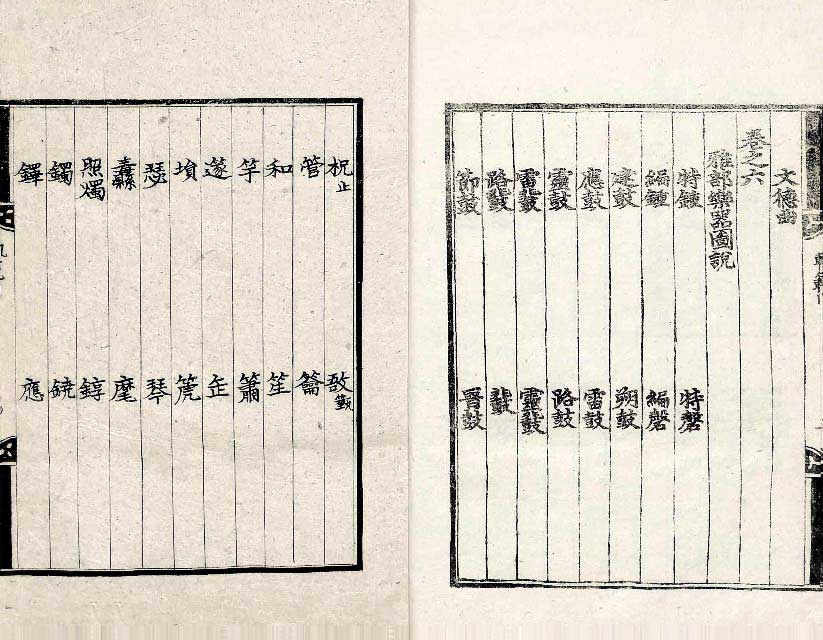 文德曲
卷之六
雅部樂器圖說
特鍾 特磬
編鍾 編磬
建鼓 朔鼓
應鼓 雷鼓
靈鼓 路鼓
雷鼗 靈鼗
路鼗 鼗
節鼓 晉鼓
柷止 敔籈
管 籥
和 笙
竽 簫
篴 缶
塤 篪
瑟 琴
纛 麾
照燭 錞
鐲 鐃
鐸 應